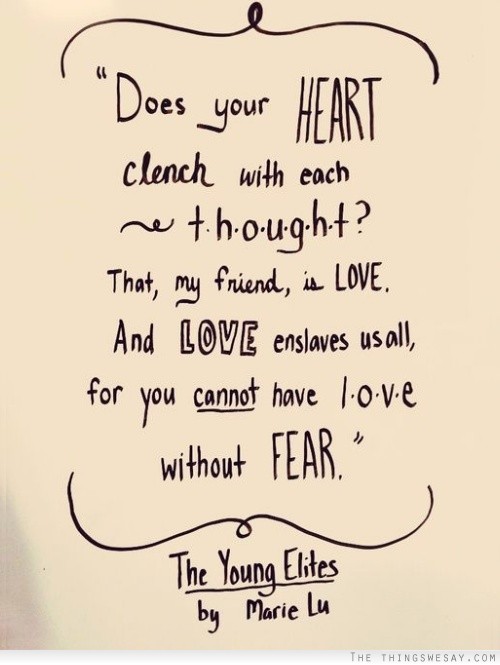 "Does your HEART
clench with each
t.h.o.u.g.h.t?
That, my friend, is LOVE.
And LOVE enslaves us all,
for you cannot have l.o.v.e
without FEAR."
The Young Elites
by Marie Lu
THE THINGSWESAY.COM